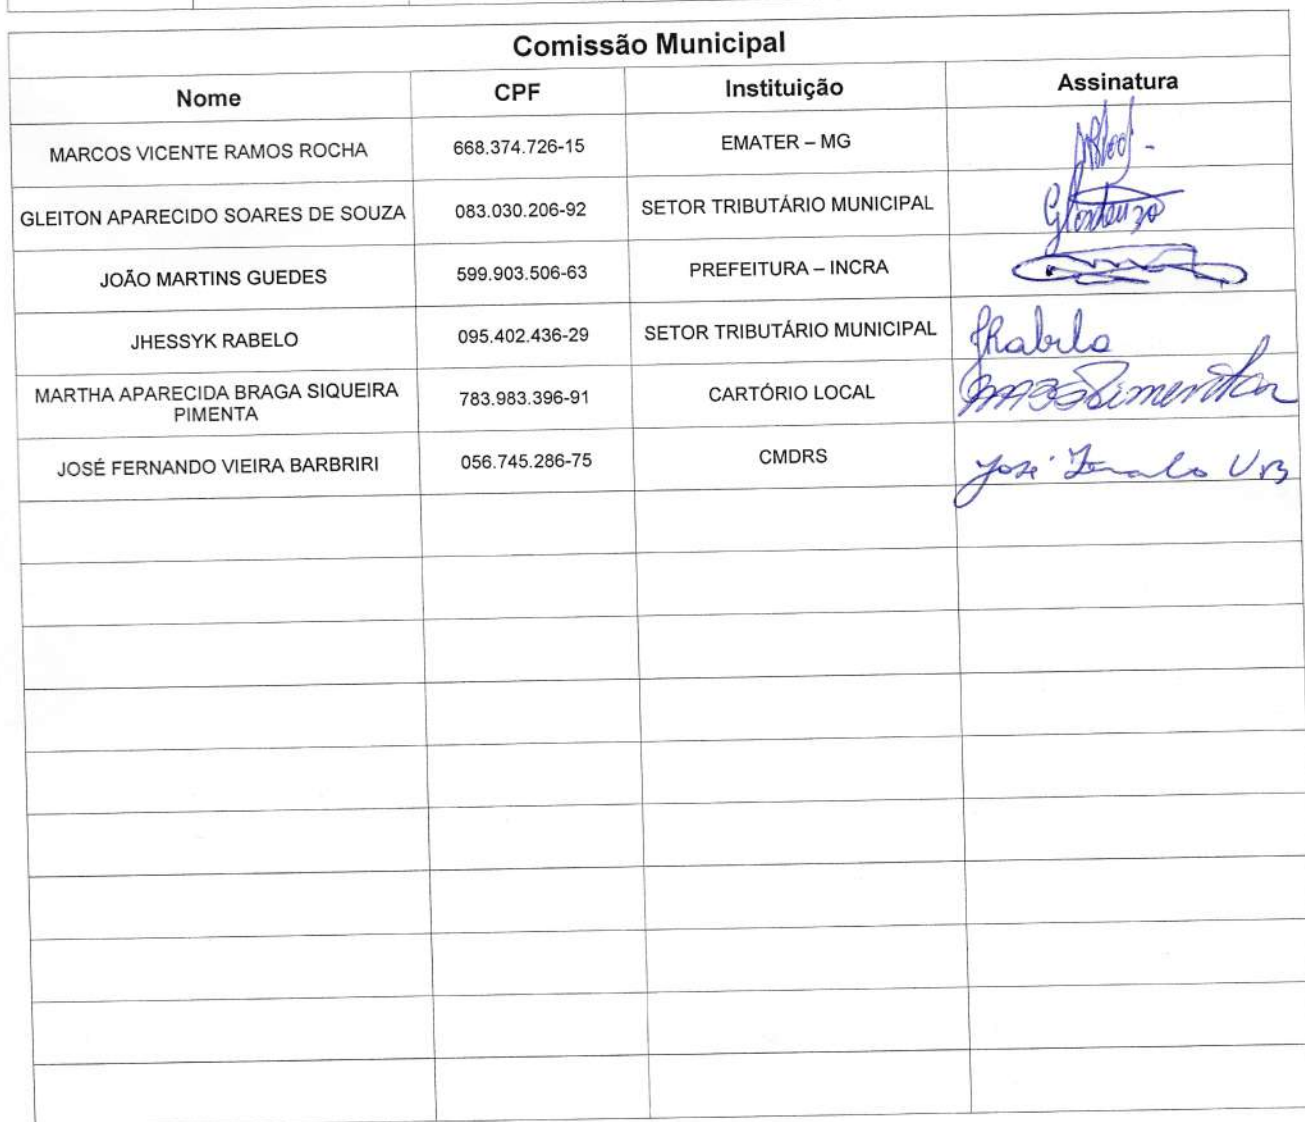 Comissão Municipal
Nome CPF Instituição Assinatura
MARCOS VICENTE RAMOS ROCHA 668.374.726-15 EMATER – MG
GLEITON APARECIDO SOARES DE SOUZA 083.030.206-92 SETOR TRIBUTÁRIO MUNICIPAL
JOÃO MARTINS GUEDES 599.903.506-63 PREFEITURA – INCRA
JHESSYK RABELO 095.402.436-29 SETOR TRIBUTÁRIO MUNICIPAL
MARTHA APARECIDA BRAGA SIQUEIRA
PIMENTA 783.983.396-91 CARTÓRIO LOCAL
JOSÉ FERNANDO VIEIRA BARBRIRI 056.745.286-75 CMDRS José